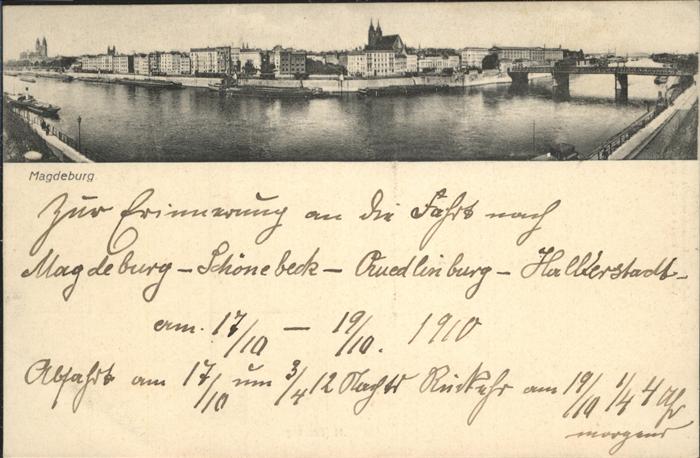 Magdeburg.
Zur Erinnerung an die Fahrt nach
Magdeburg – Schönebeck – Quedlinburg – Halberstadt –
am. 17/10 – 19/10. 1910
Abfahrt am 17/10 um 3/4 12 Nachts Rückkehr am 19/10 1/4 4 Uhr
morgens